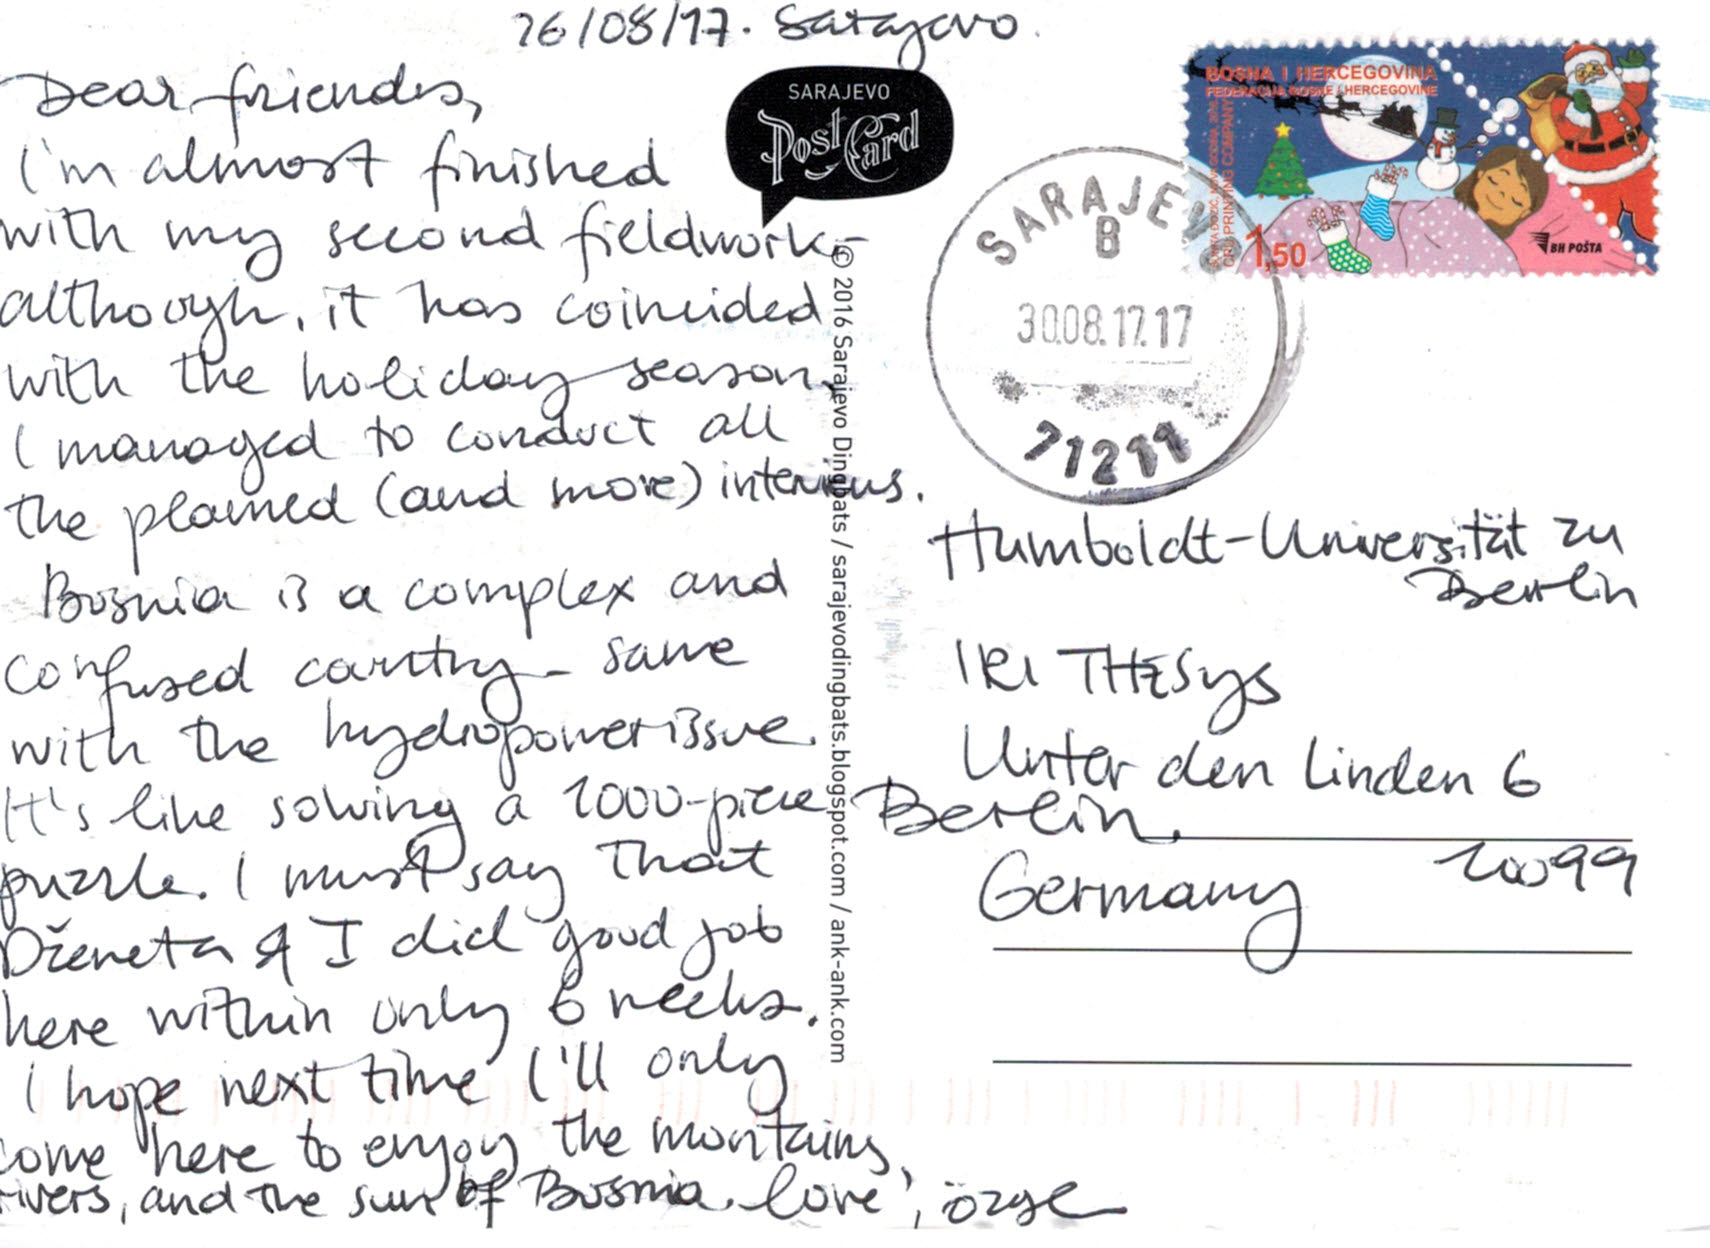 26/08/17. Sarajevo.
Dear friends,
I'm almost finished
with my second fieldwork-
although, it has coincided
with the holiday season,
I managed to conduct all
the planned (and more) interviews.
Bosnia is a complex and
confused country - same
with the hydropower issue.
It's like solving a 1000-piece
puzzle. I must say that
Dženeta & I did good job
here within only 6 weeks.
I hope next time I'll only
come here to enjoy the mountains,
rivers, and the sun of Bosnia. love', özge
SARAJEVO
Post Card
© 2016 Sarajevo Dingbats / sarajevodingbats.blogspot.com / ank-ank.com
BOSNA I HERCEGOVINA
FEDERACIJA BOSNE I HERCEGOVINE
1,50
BH POŠTA
SARAJEVO
B
30.08.17.17
71211
Humboldt-Universität zu
Berlin
IRI THESys
Unter den Linden 6
Berlin,
10099
Germany